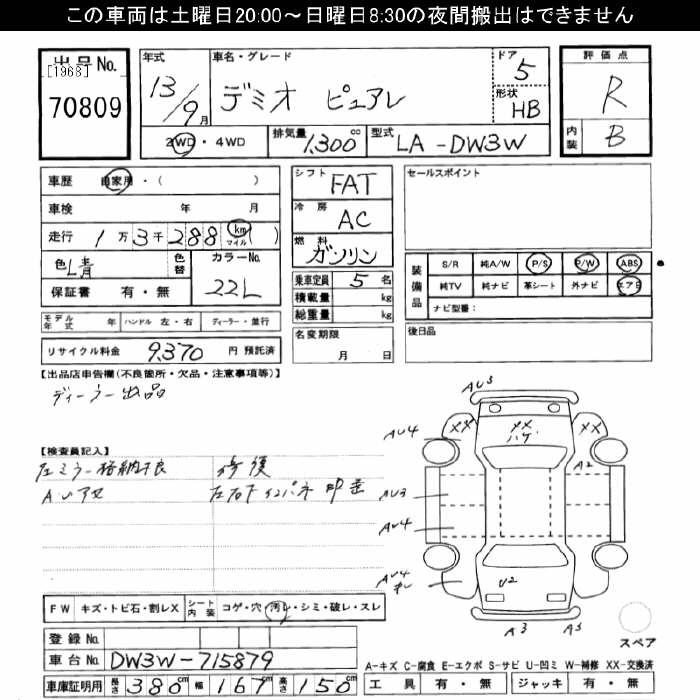 この車両は土曜日20:00～日曜日8:30の夜間搬出はできません
出品No.
[1968]
70809
年式
13/9月
車名・グレード
デミオ ピュアレ
ドア
5
形状
HB
評価点
R
内装
B
2WD・4WD
排気量
1,300cc
型式
LA-DW3W
車歴 自家用・( )
車検 年 月
走行 1万3千288 km マイル( )
色 L青
色替
カラーNo.
22L
保証書 有・無
シフト
FAT
冷房
AC
燃料
ガソリン
乗車定員 5名
積載量 kg
総重量 kg
名変期限
月 日
セールスポイント
装備品
S/R 純A/W P/S P/W ABS
純TV 純ナビ 革シート 外ナビ エアB
ナビ型番:
後日品
モデル年式 年 ハンドル 左・右 ディーラー・並行
リサイクル料金 9,370 円 預託済
【出品店申告欄(不良箇所・欠品・注意事項等)】
ディーラー出品
【検査員記入】
左ミラー格納不良 修復
左右下インパネ
AU3
AU4
XX
XX
ハゲ
XX
A2
AU3
AU4
AU4
U2
A3
A3
スペア
FW キズ・トビ石・割レX シート内装 コゲ・穴・汚レ・シミ・破レ・スレ
登録No.
車台No. DW3W-715879
車庫証明用 長さ 380cm 幅 167cm 高さ 150cm
A-キズ C-腐食 E-エクボ S-サビ U-凹ミ W-補修 XX-交換済
工具 有・無 ジャッキ 有・無